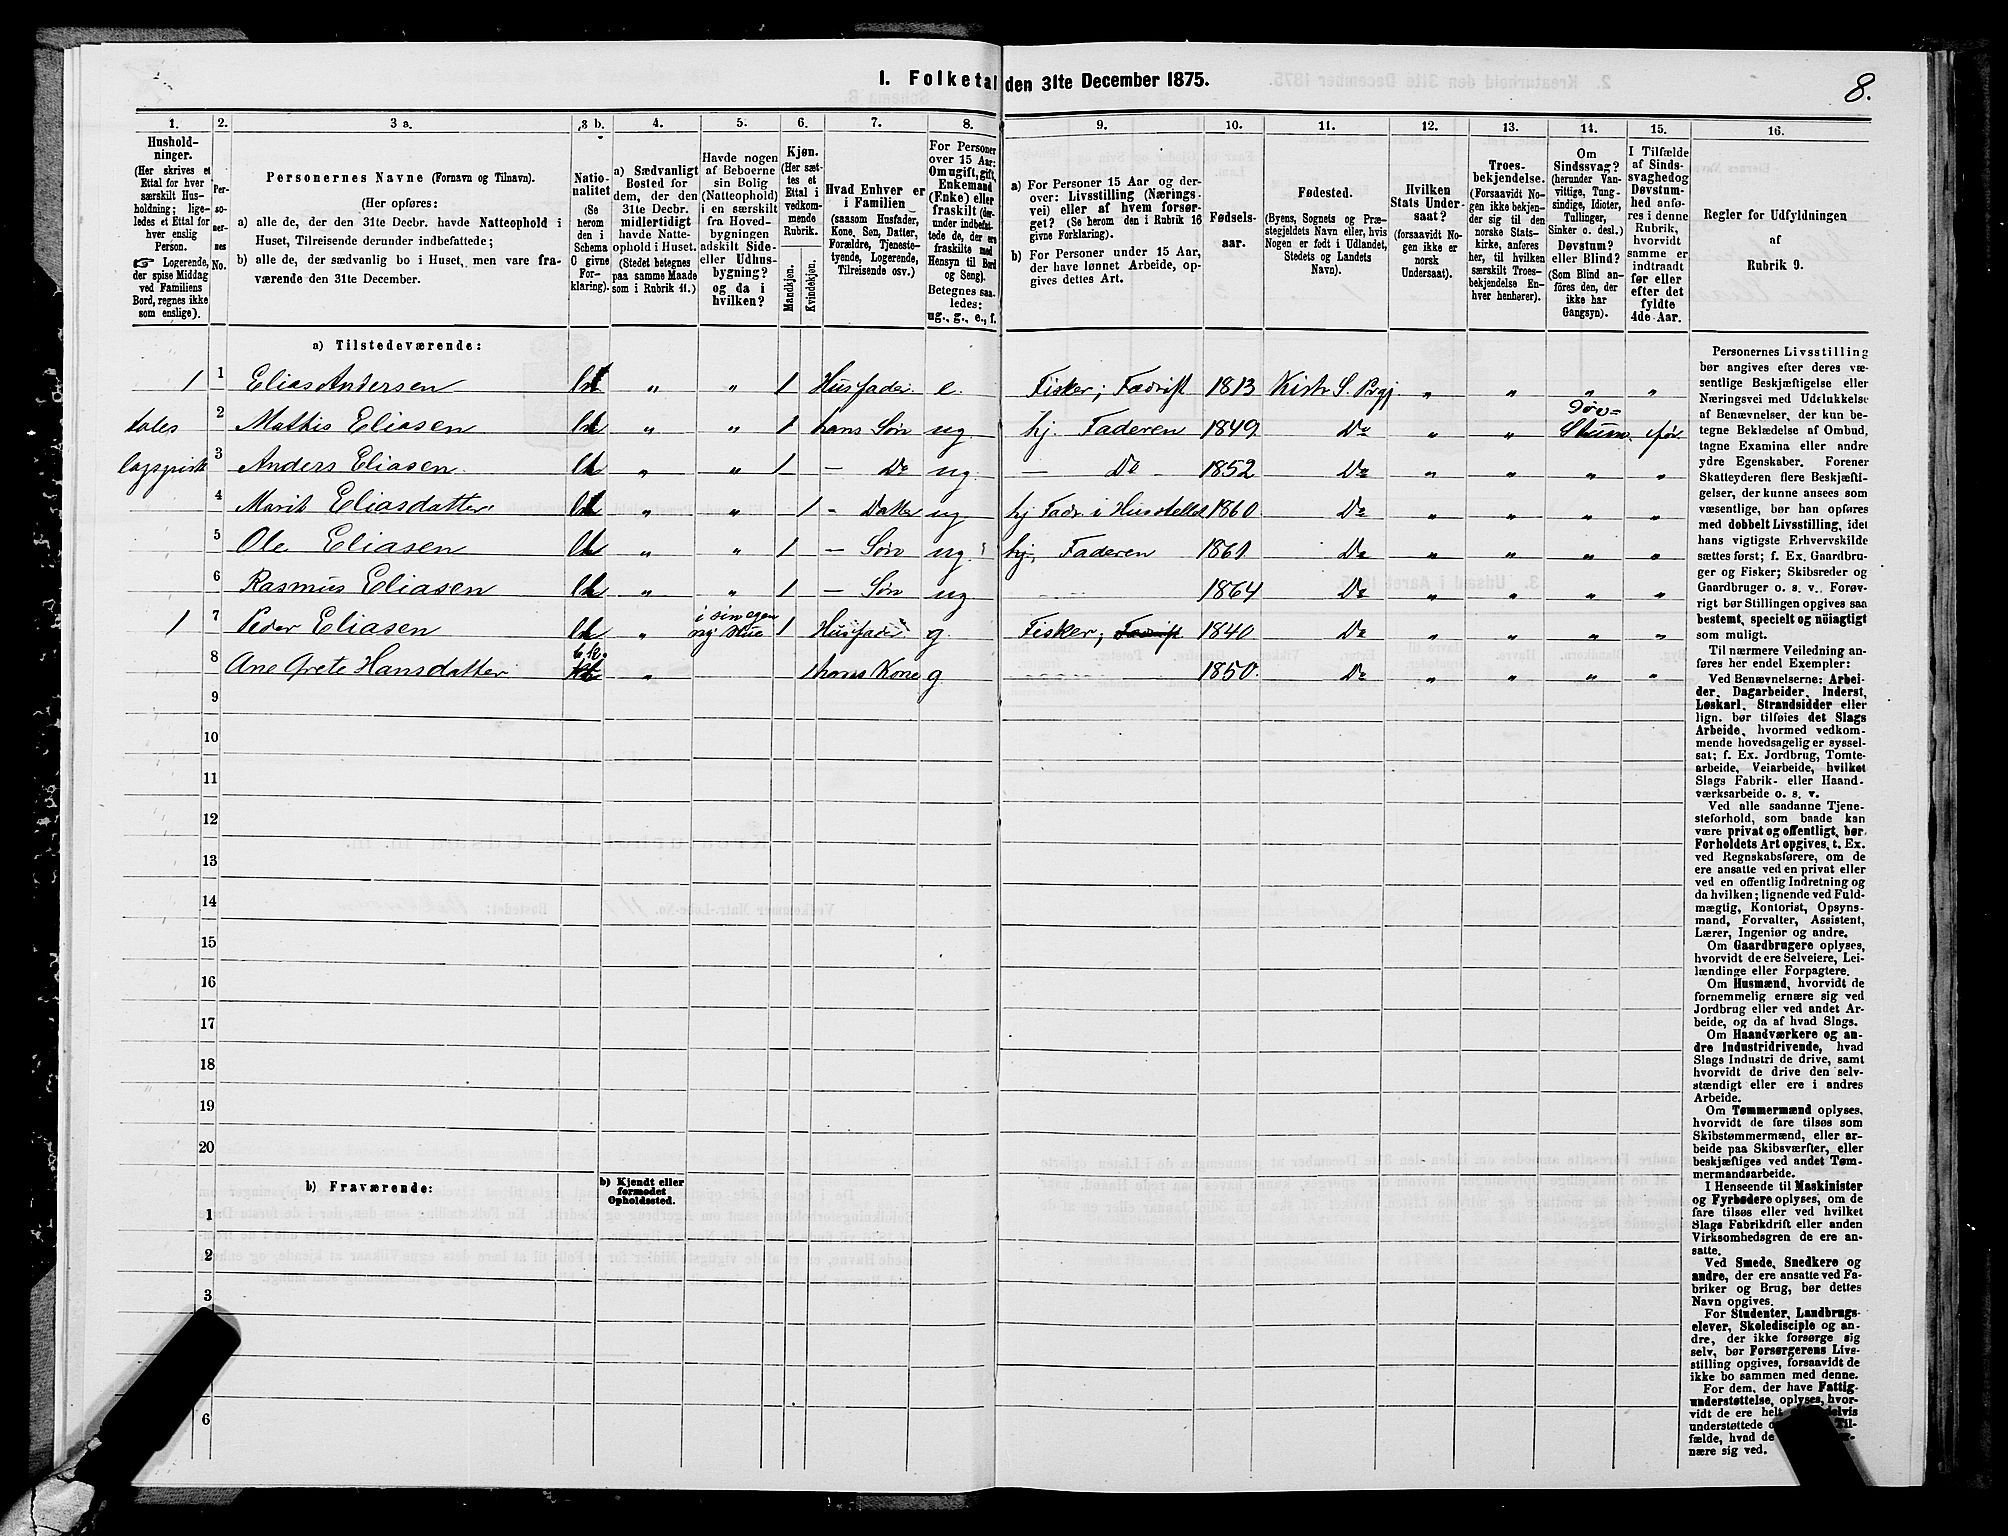 I. Folketal den 31te December 1875.
8.
1.
2.
3 a.
3 b.
4.
5.
6.
7.
8.
9.
10.
11.
12.
13.
14.
15.
16.
Hushold-
ninger.
(Her skrives et
Ettal for hver
særskilt Hus-
holdning; lige-
ledes et Ettal for
hver enslig
Person.
☞ Logerende,
der spise Middag
ved Familiens
Bord, regnes ikke
som enslige).
Per-
so-
ner-
nes
No.
Personernes Navne (Fornavn og Tilnavn).
(Her opføres:
a) alle de, der den 31te Decbr. havde Natteophold i
Huset, Tilreisende derunder indbefattede;
b) alle de, der sædvanlig bo i Huset, men vare fra-
værende den 31te December.
Natio-
nalitet
(Se
herom
den i
Schema
C givne
For-
klaring).
a) Sædvanligt
Bosted for
dem, der den
31te Decbr.
midlertidigt
havde Natte-
ophold i Huset.
(Stedet betegnes
paa samme Maade
som i Rubrik 11.)
Havde nogen
af Beboerne
sin Bolig
(Natteophold)
i en særskilt
fra Hoved-
bygningen
adskilt Side-
eller Udhus-
bygning?
og da i
hvilken?
Kjøn.
(Her sæt-
tes et
Ettal i
vedkom-
mende
Rubrik.
Mandkjøn.
Kvindekjøn.
Hvad Enhver er
i Familien
(saasom Husfader,
Kone, Søn, Datter,
Forældre, Tjeneste-
tyende, Logerende,
Tilreisende osv.)
For Personer
over 15 Aar:
Om ugift, gift,
Enkemand
(Enke) eller
fraskilt (der-
under indbefat-
tede de, der ere
fraskilte med
Hensyn til Bord
og Seng).
Betegnes saa-
ledes:
ug., g., e., f.
a) For Personer 15 Aar og der-
over: Livsstilling (Nærings-
vei) eller af hvem forsør-
get? (Se herom den i Rubrik 16
givne Forklaring).
b) For Personer under 15 Aar,
der have lønnet Arbeide, op-
gives dettes Art.
Fødsels-
aar.
Fødested.
(Byens, Sognets og Præ-
stegjeldets Navn eller, hvis
Nogen er født i Udlandet,
Stedets og Landets
Navn).
Hvilken
Stats Under-
saat?
(forsaavidt No-
gen ikke er
norsk
Undersaat).
Troes-
bekjendelse.
(Forsaavidt No-
gen ikke bekjen-
der sig til den
norske Stats-
kirke, anføres
her, til hvilken
særskilt Troes-
bekjendelse En-
hver henhører).
Om
Sindssvag?
(herunder Van-
vittige, Tung-
sindige, Idioter,
Tullinger,
Sinker o. desl.)
Døvstum?
eller Blind?
(Som Blind an-
føres den, der
ikke har
Gangsyn).
I Tilfælde
af Sinds-
svaghedog
Døvstum-
hed anfø-
res i denne
Rubrik,
hvorvidt
samme er
indtraadt
før eller
efter det
fyldte
4de Aar.
Regler for Udfyldningen
af
Rubrik 9.
a) Tilstedeværende:
1 1 Elias Andersen „ „ 1 Husfader e. Fisker; Fædrift 1813 Kistr. S. Prgj „ „ „ „
2 Mathis Eliasen „ „ 1 hans Søn ug. hj. Faderen 1849 Do „ „ Døv=
Stum før
3 Anders Eliasen „ „ 1 — Do ug. — Do — 1852 Do „ „ „ „
4 Marit Eliasdatter „ „ 1 - Datter ug hj Fadr. i Husstellet 1860 Do „ „ „ „
5 Ole Eliasen „ „ 1 — Søn ug hj. Faderen 1861 Do „ „ „ „
6 Rasmus Eliasen „ „ 1 — Søn ug 1864 Do „ „ „ „
1 7 Peder Eliasen „ i sin egen
ny Hue 1 Husfader g. Fisker; Fædrift 1840 Do „ „ „ „
8 Ane Grete Hansdatter „ 1 hans Kone g 1850 Do „ „ „ „
9
10
11
12
13
14
15
16
17
18
19
20
b) Fraværende:
b) Kjendt eller
formodet
Opholdssted.
1
2
3
6
Personernes Livsstilling
bør angives efter deres væ-
sentlige Beskjæftigelse eller
Næringsvei med Udelukkelse
af Benævnelser, der kun be-
tegne Beklædelse af Ombud,
tagne Examina eller andre
ydre Egenskaber. Forener
Skatteyderen flere Beskjæfti-
gelser, der kunne ansees som
væsentlige, bør han opføres
med dobbelt Livsstilling, idet
hans vigtigste Erhvervskilde
sættes først; f. Ex. Gaardbru-
ger og Fisker; Skibsreder og
Gaardbruger o. s. v. Forøv-
rigt bør Stillingen opgives saa
bestemt, specielt og nøiagtigt
som muligt.
Til nærmere Veiledning an-
føres her endel Exempler:
Ved Benævnelserne: Arbei-
der, Dagarbeider, Inderst,
Løskarl, Strandsidder eller
lign. bør tilføies det Slags
Arbeide, hvormed vedkom-
mende hovedsagelig er syssel-
sat; f. Ex. Jordbrug, Tomte-
arbeide, Veiarbeide, hvilket
Slags Fabrik- eller Haand-
værksarbeide o. s. v.
Ved alle saadanne Tjene-
steforhold, som baade kan
være privat og offentligt, bør
Forholdets Art opgives, t. Ex.
ved Regnskabsførere, om de
ere ansatte ved en privat eller
ved en offentlig Indretning og
da hvilken; lignende ved Fuld-
mægtig, Kontorist, Opsyns-
mand, Forvalter, Assistent,
Lærer, Ingeniør og andre.
Om Gaardbrugere oplyses,
hvorvidt de ere Selveiere, Lei-
lændinge eller Forpagtere.
Om Husmænd, hvorvidt de
fornemmelig ernære sig ved
Jordbrug eller ved andet Ar-
beide, og da af hvad Slags.
Om Haandværkere og an-
dre Industridrivende, hvad
Slags Industri de drive, samt
hvorvidt de drive den selv-
stændigt eller ere i andres
Arbeide.
Om Tømmermænd oplyses,
hvorvidt de fare tilsøs som
Skibstømmermænd, eller ar-
beide paa Skibsværfter, eller
beskjæftiges ved andet Tøm-
mermandsarbeide.
I Henseende til Maskinister
og Fyrbødere oplyses, om de
fare tilsøs eller ved hvilket
Slags Fabrikdrift eller anden
Virksomhedsgren de ere an-
satte.
Ved Smede, Snedkere og
andre, der ere ansatte ved Fa-
briker og Brug, bør dettes
Navn opgives.
For Studenter, Landbrugs-
elever, Skoledisciple og an-
dre, der ikke forsørge sig
selv, bør Forsørgerens Livs-
stilling opgives, forsaavidt de
ikke bo sammen med denne.
For dem, der have Fattig-
understøttelse, oplyses, hvor-
vidt de ere helt
understøttede
fælde, hvad de
nære sig ved.